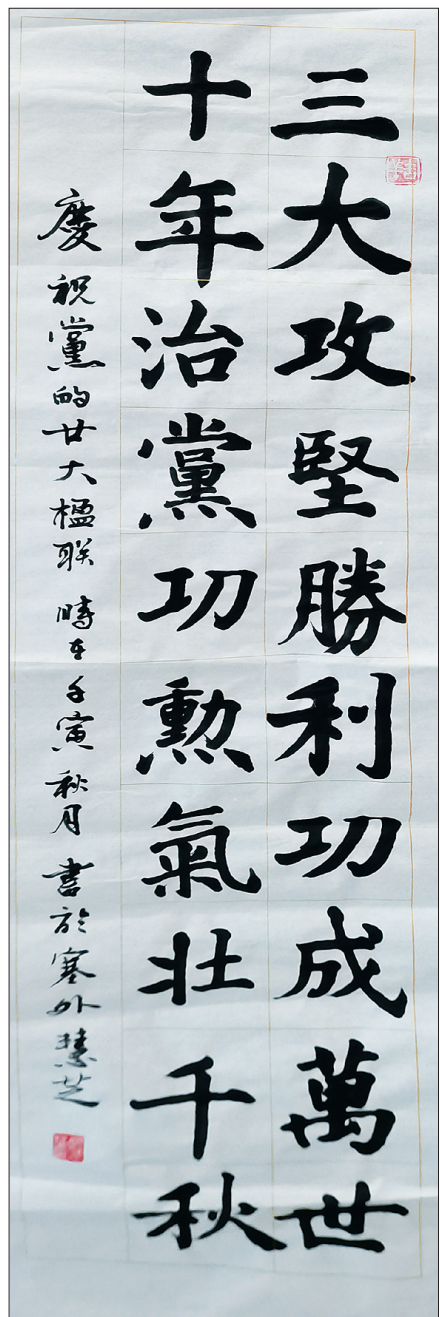 三大攻堅勝利功成萬世
十年治黨功勳氣壯千秋
慶祝黨的廿大楹联 時在壬寅秋月 書於塞外慧芝